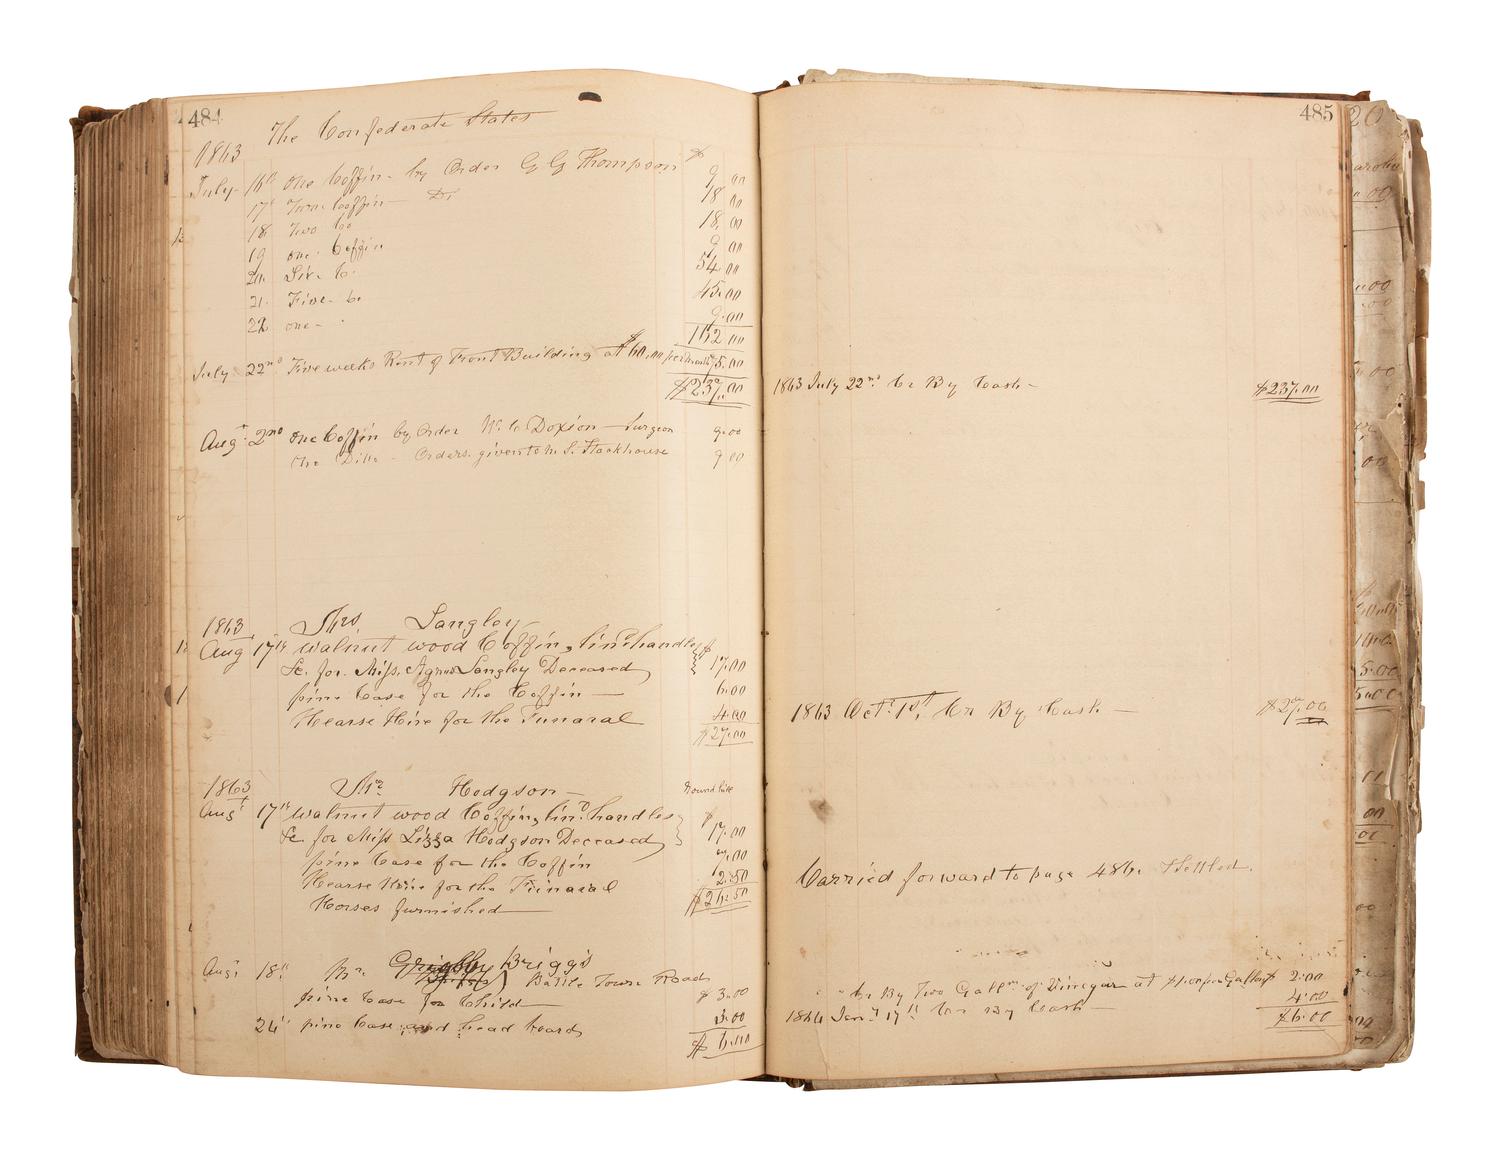 484
The Confederate States
1863 $
July 16th one Coffin - by Order G G Thompson 9 00
17th Two Coffin — Do 18 00
18 Two Co 18 00
19 one Coffin 9 00
20 Six Co 54 00
21 Five Co 45.00
22 one - 9.00
162 00
July 22nd Five weeks Rent of Front Building at $60,00 per month 75.00
$237.00
Augt 2nd one Coffin by Order Doxion — Surgeon 9.00
one Ditto - Orders given to Stackhouse 9 00
1863 Mrs Langley
Aug 17th walnut wood Coffin, lind handles $
&c. for Miss. Agnes Langley Deceased 17.00
pine Case for the Coffin — 6.00
Hearse Hire for the Funaral 4.00
$27.00
1863 Mr Hodgson —
Augt 17th walnut wood Coffin, lind handles $
&c for Miss Lizza Hodgson Deceased 17.00
pine Case for the Coffin 7.00
Hearse Hire for the Funaral 2.50
Horses furnished — $26.50
Augt 18th Mr Grigsby Briggs
Battle Town Road
pine Case for Child — $3.00
24th pine Case and head board 3.00
$6.00
485
1863 July 22nd Cr By Cash - $237.00
1863 Octr. 1st, Cr By Cash — $27.00
Carried forward to page 486. Settled.
Cr By Two Galls of Vinegar at $1.00 per Gallon $ 2.00
4.00
1864 Jany 17th Cr By Cash $6.00